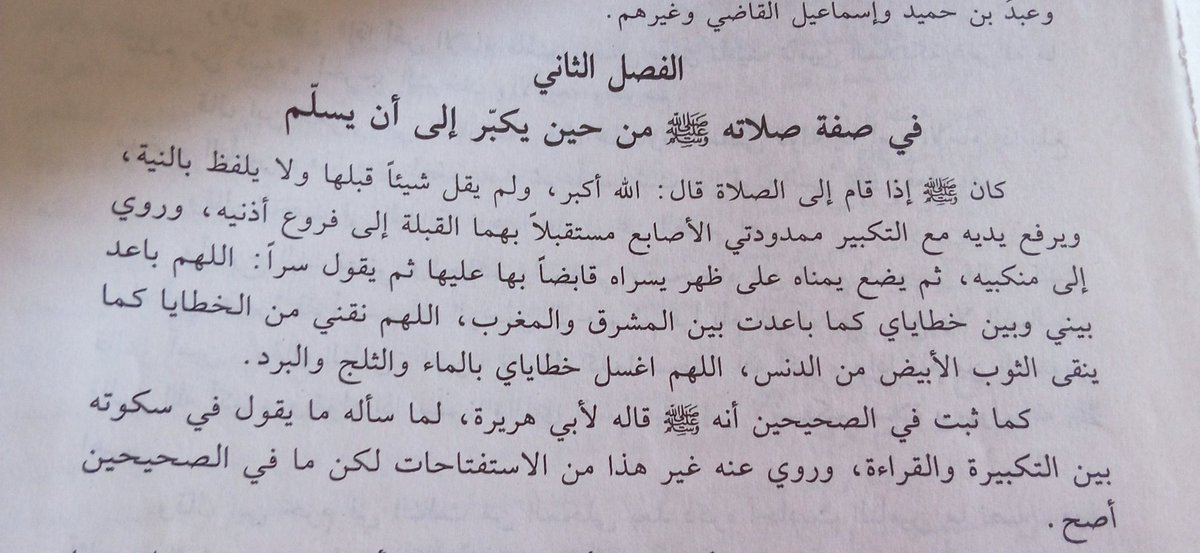 وعبد بن حميد وإسماعيل القاضي وغيرهم.
الفصل الثاني
في صفة صلاته ﷺ من حين يكبّر إلى أن يسلّم
كان ﷺ إذا قام إلى الصلاة قال: الله أكبر، ولم يقل شيئاً قبلها ولا يلفظ بالنية،
ويرفع يديه مع التكبير ممدودتي الأصابع مستقبلاً بهما القبلة إلى فروع أذنيه، وروي
إلى منكبيه، ثم يضع يمناه على ظهر يسراه قابضاً بها عليها ثم يقول سراً: اللهم باعد
بيني وبين خطاياي كما باعدت بين المشرق والمغرب، اللهم نقني من الخطايا كما
ينقى الثوب الأبيض من الدنس، اللهم اغسل خطاياي بالماء والثلج والبرد.
كما ثبت في الصحيحين أنه ﷺ قاله لأبي هريرة، لما سأله ما يقول في سكوته
بين التكبيرة والقراءة، وروي عنه غير هذا من الاستفتاحات لكن ما في الصحيحين
أصح.